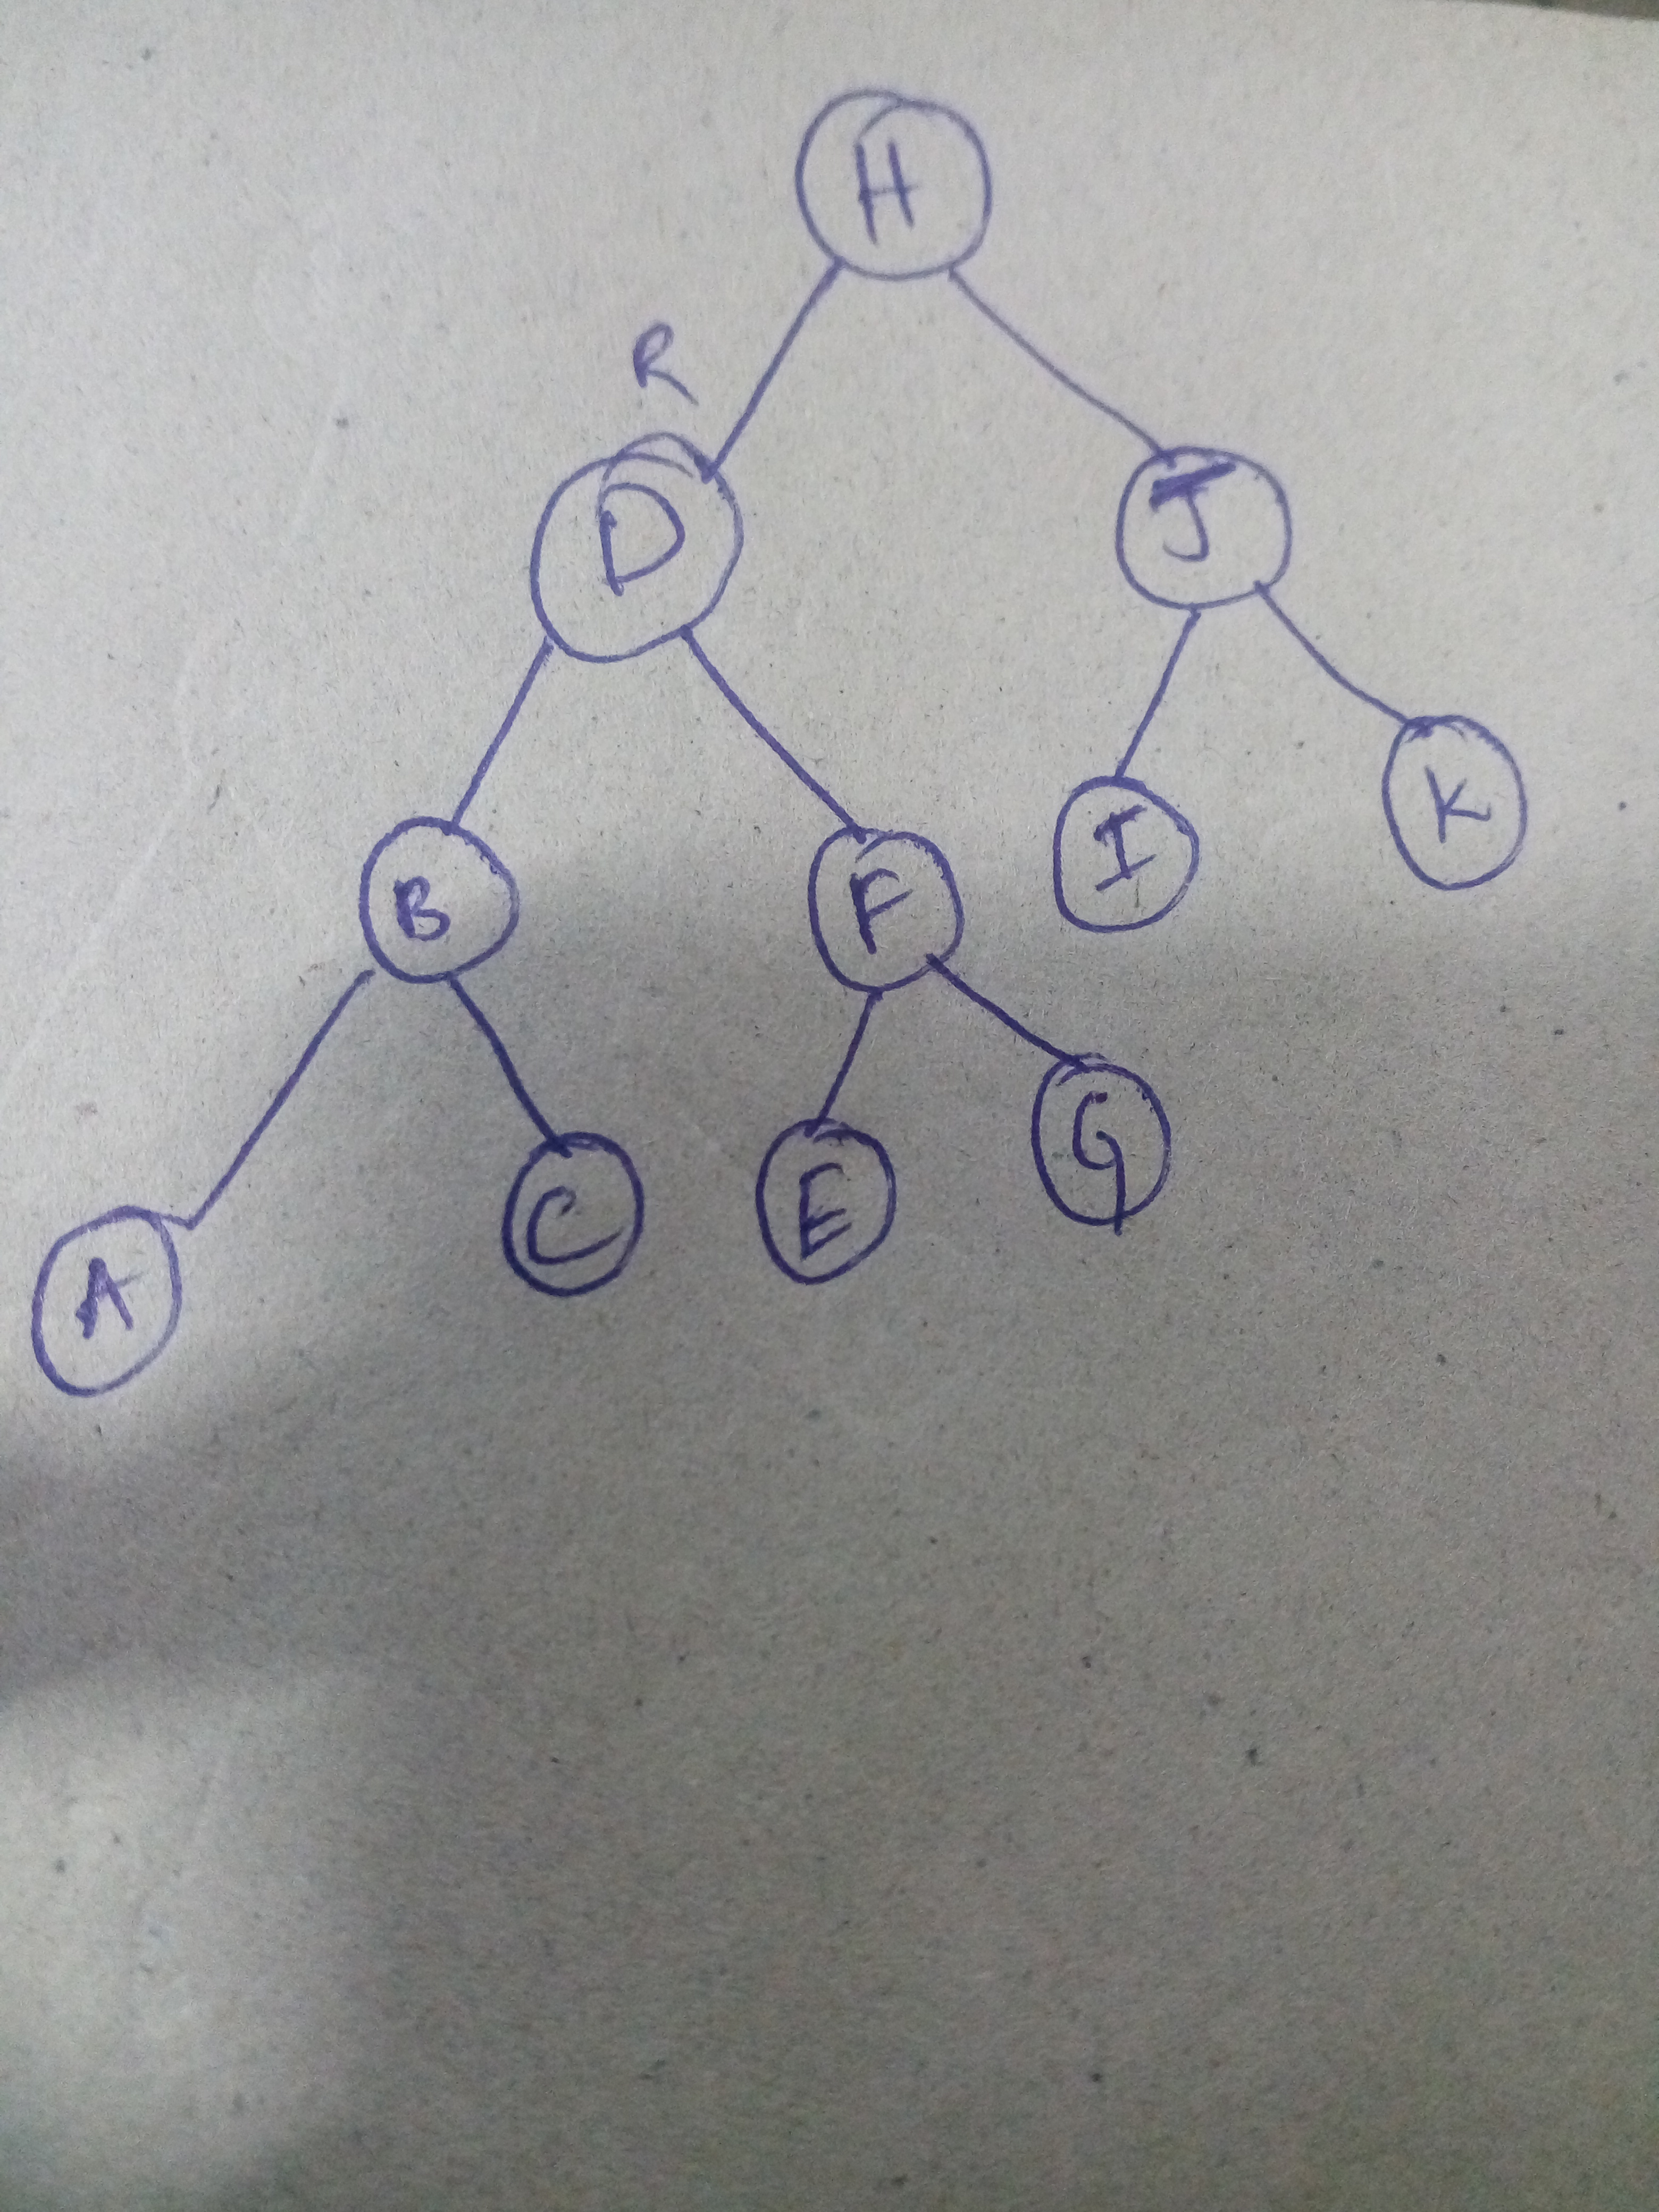 H
R
D J
B F I K
A C E G